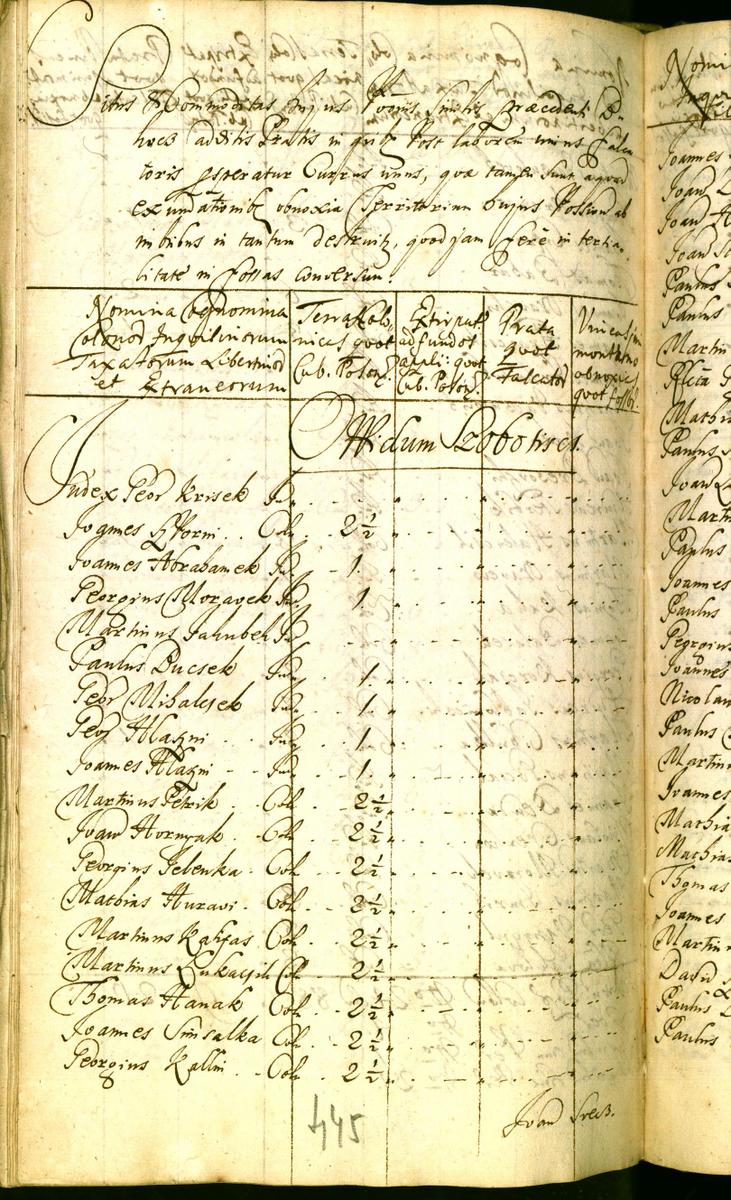 Situs & Commoditas hujus Possionis similis praecedenti Ad-
huc additis Pratis in quibq Post laborem unius Falca
toris speratur Currus unus, quae tamen sunt aquar
exundationibq obnoxia Territorium hujus Possion ab
imbribus in tantum destruitq, quod jam fere in tertia-
litate in fossas conversum.
Nomina Cognomina
Colonor Inquilinorum
Taxatorum Libertinor
et Extraneorum
Terra Colo
nicas quot
Cub. Poson.
Extirpat.
ad fundos
quot
Cub. Poson.
Prata
quot
Falcator
Vineas in
obnoxias
quot foss.
Oppidum Szobotiscz.
Judex Geor Krisek In
Joannes Col 2½
Joannes Abrahamek In 1
Georgius Moravek In 1
Martinus Jakubek In
Paulus Ducsek In 1
Geor Mihalcsek In 1
Geor Hlagni In 1
Joannes Hlagni In 1
Martinus Petrik Col 2½
Joan Hornyak Col 2½
Georgius Jelenka Col 2½
Mathias Huravi Col 2½
Martinus Col 2½
Martinus Col 2½
Thomas Hanak Col 2½
Joannes Smsalka Col 2½
Georgius Kallin Col 2½
445
Joan
Nomi
Joannes
Joan
Joan H
Joan
Paulus
Paulus
Martin
Mathi
Paulus
Joan
Marti
Paulus
Joannes
Paulus
Georgius
Joannes
Nicolau
Paulus
Martin
Joannes
Mathia
Mathias
Thomas
Joannes
Martin
David
Paulus
Paulus